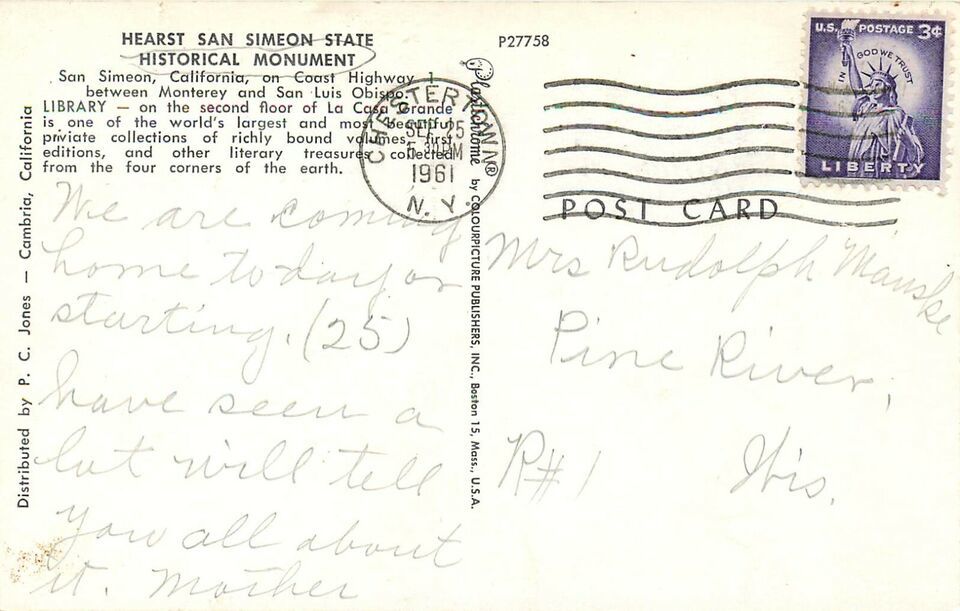 HEARST SAN SIMEON STATE
HISTORICAL MONUMENT
San Simeon, California, on Coast Highway 1
between Monterey and San Luis Obispo.
LIBRARY — on the second floor of La Casa Grande
is one of the world's largest and most beautiful
private collections of richly bound volumes, first
editions, and other literary treasures collected
from the four corners of the earth.
We are coming
home today or
starting. (25)
have seen a
lot will tell
you all about
it. Mother
Distributed by P. C. Jones — Cambria, California
P27758
Plastichrome ® by COLOURPICTURE PUBLISHERS, INC., Boston 15, Mass., U.S.A.
CHESTERTOWN
SEP 25
1961
N. Y.
U.S. POSTAGE 3¢
IN GOD WE TRUST
LIBERTY
POST CARD
Mrs Rudolph Manske
Pine River,
R#1 Wis.